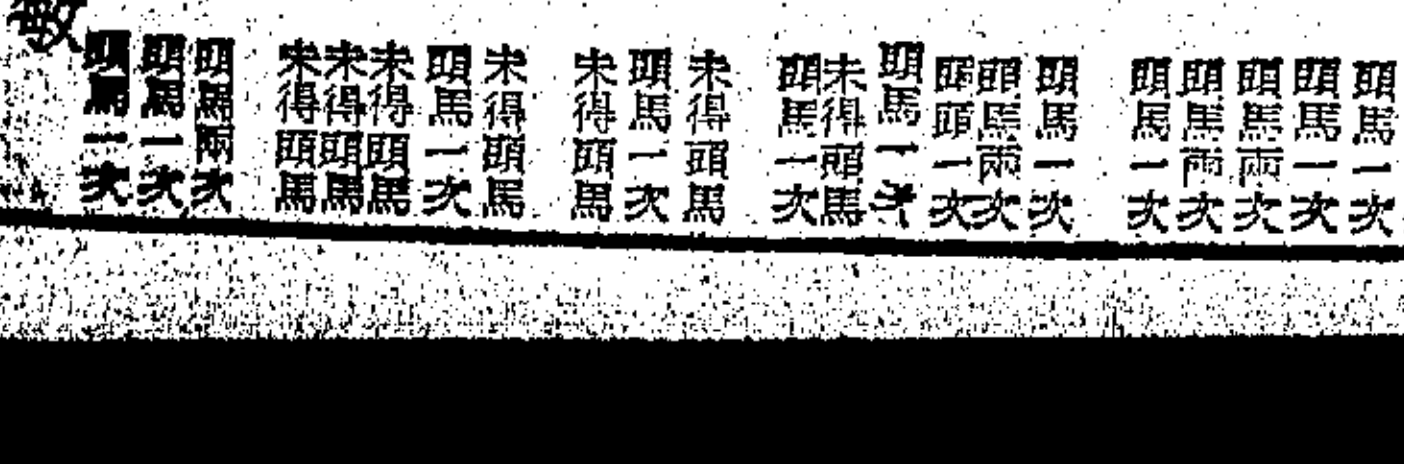 頭馬一次
頭馬一次
頭馬兩次
頭馬兩次
頭馬一次
頭馬一次
頭馬兩次
頭頭一次
頭馬一次
未得頭馬
頭馬一次
未得頭馬
頭馬一次
未得頭馬
未得頭馬
頭馬一次
未得頭馬
未得頭馬
未得頭馬
頭馬兩次
頭馬一次
頭馬一次